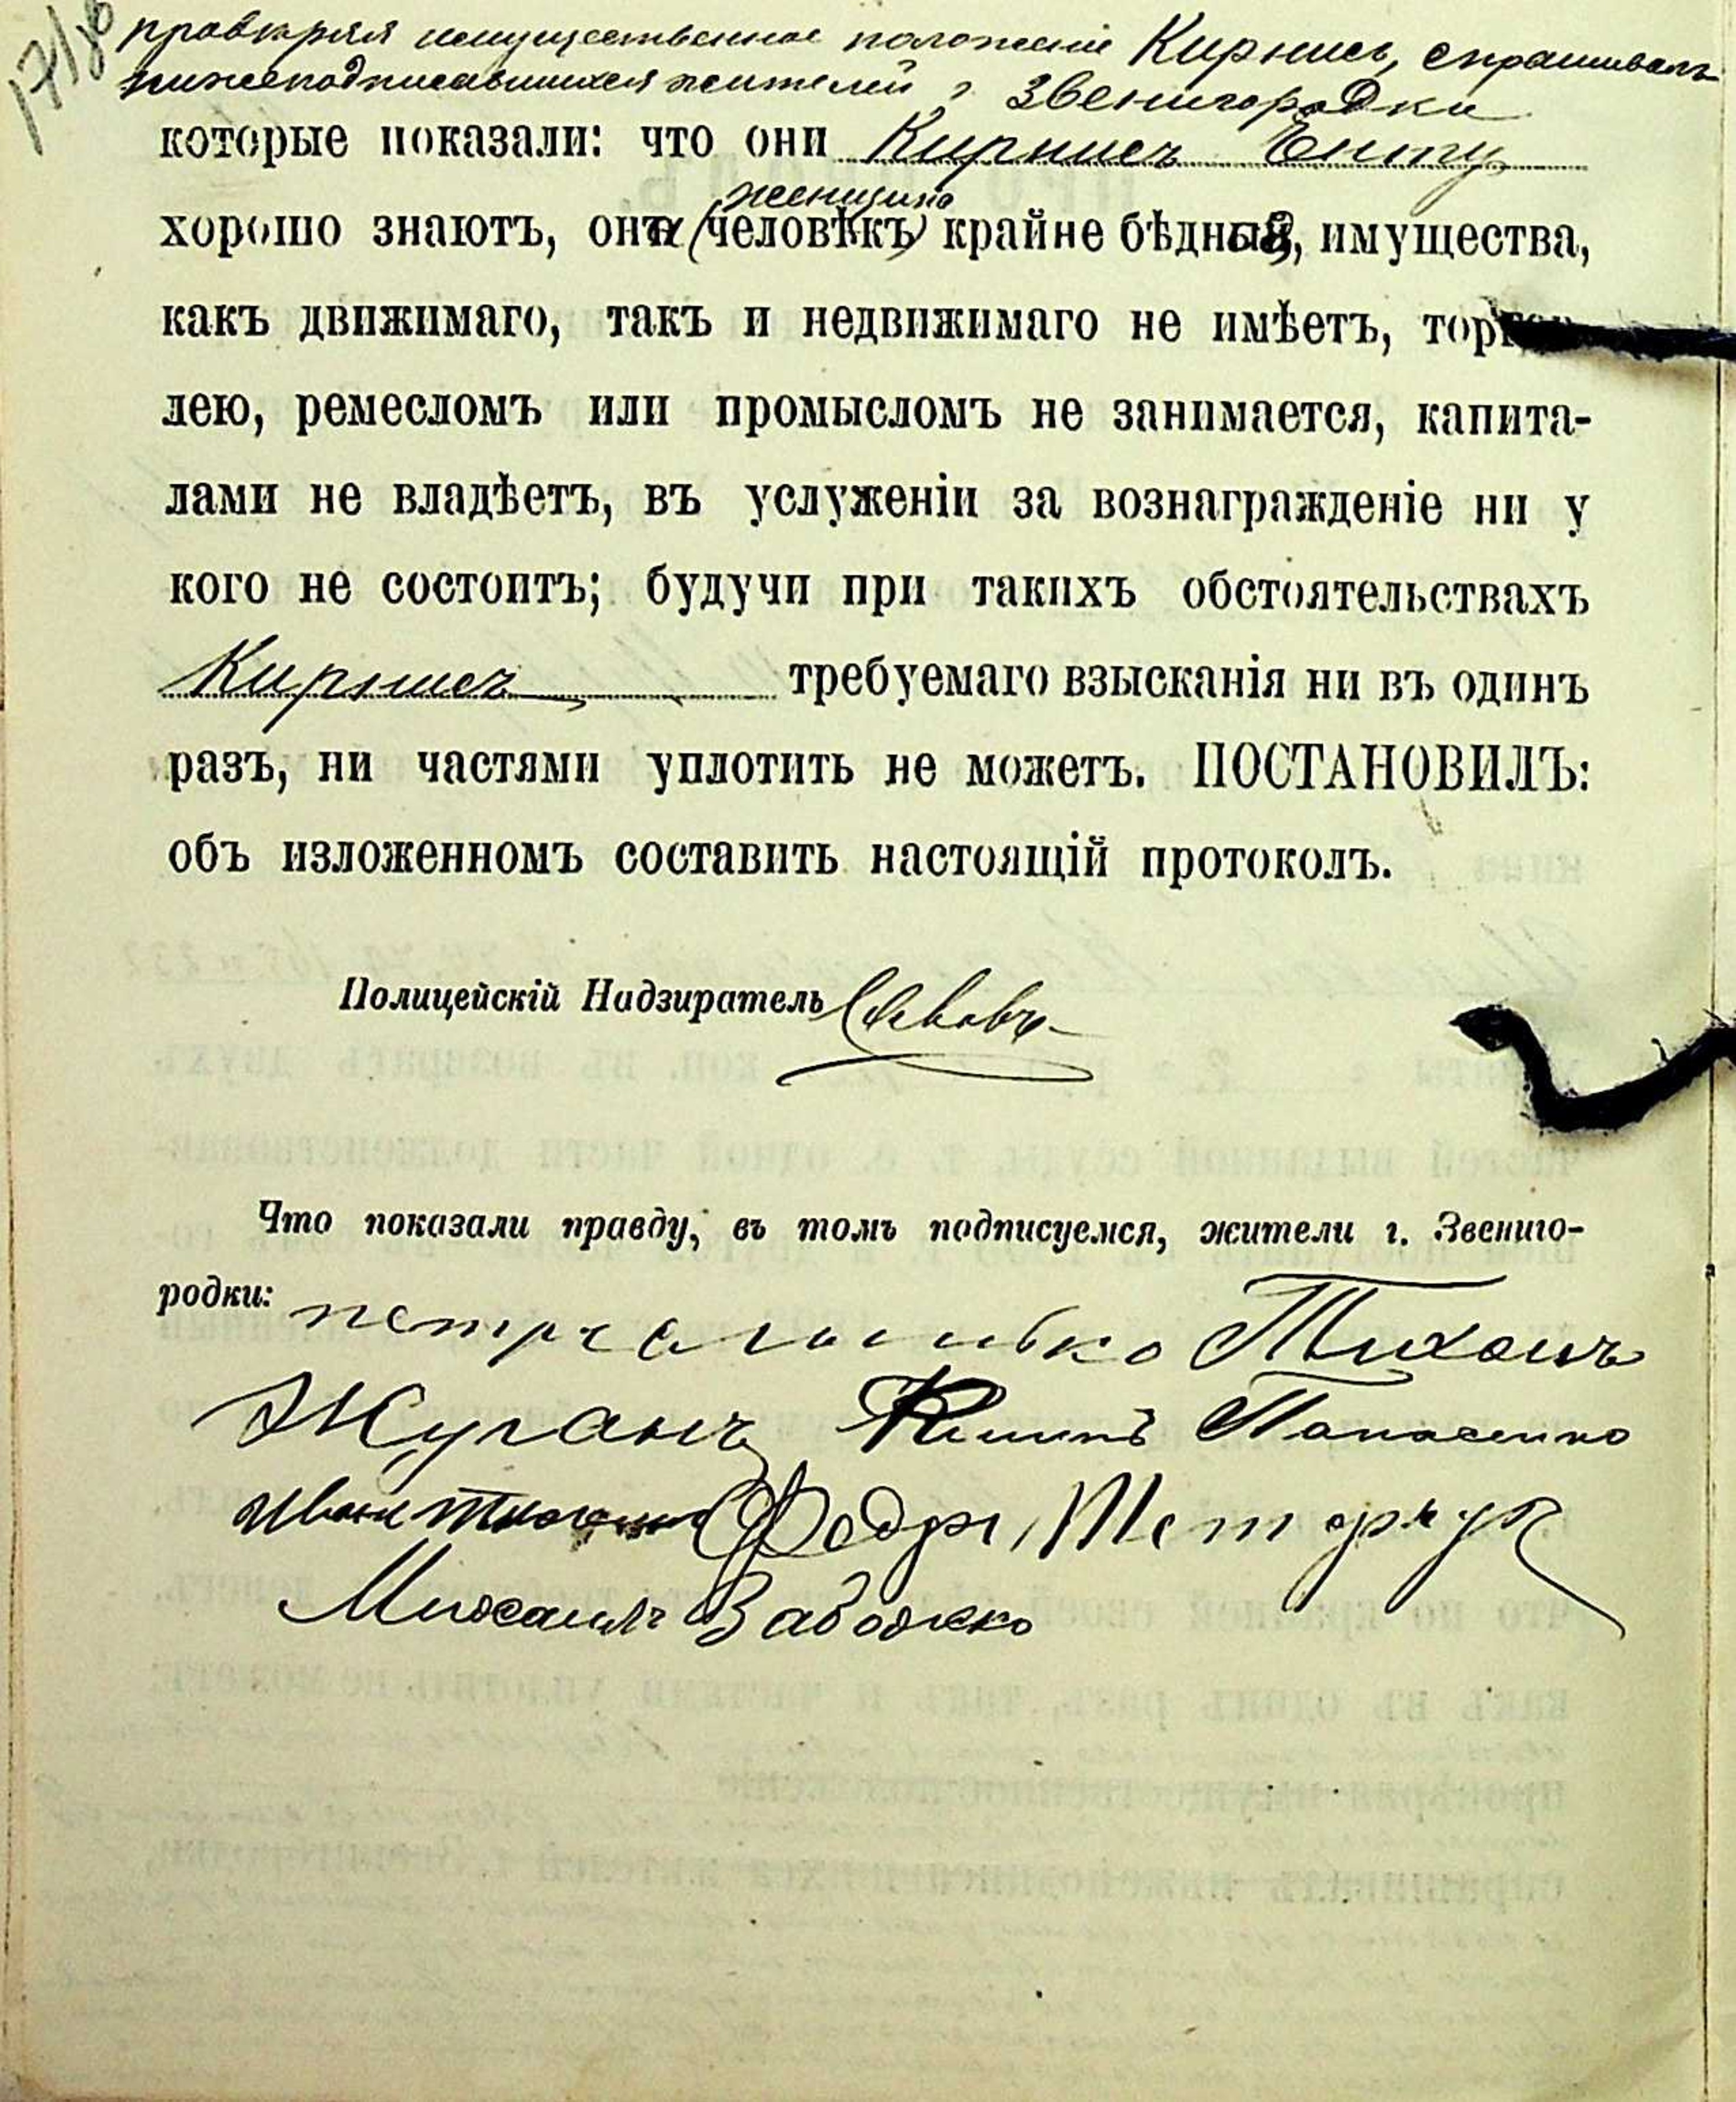 провѣряя имущественное положеніе Кирнисъ, спрашивалъ
нижеподписавшихся жителей г. Звенигородки
которые показали: что они Кирнисъ Енту
женщина
хорошо знаютъ, она (человѣкъ) крайне бѣдная, имущества,
какъ движимаго, такъ и недвижимаго не имѣетъ, торгов-
лею, ремесломъ или промысломъ не занимается, капита-
лами не владѣетъ, въ услуженіи за вознагражденіе ни у
кого не состоитъ; будучи при такихъ обстоятельствахъ
Кирнисъ требуемаго взысканія ни въ одинъ
разъ, ни частями уплотить не можетъ. ПОСТАНОВИЛЪ:
объ изложенномъ составить настоящій протоколъ.
Полицейскій Надзиратель
Что показали правду, въ томъ подписуемся, жители г. Звениго-
родки: Тихонъ
Жуганъ Панасенко
Иванъ Федоръ
Михаилъ